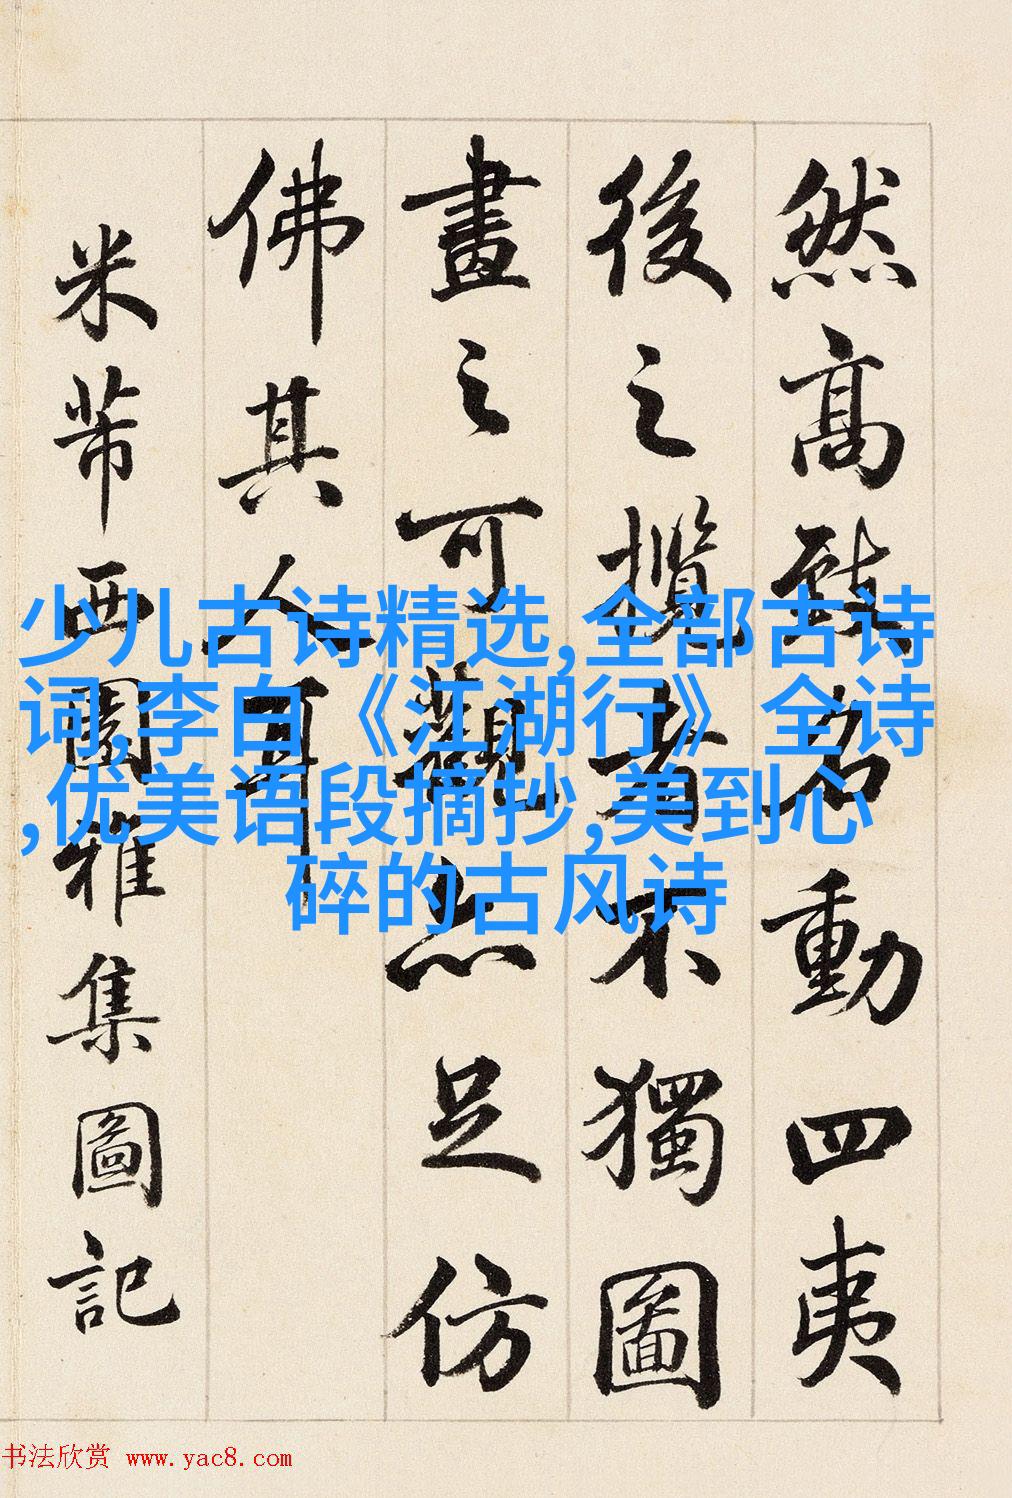 然高致名動四夷
後之攬者不獨圖
畫之可觀亦足仿
佛其人耳
米芾西園雅集圖記
少儿古诗精选,全部古诗
词,李白《江湖行》全诗
,优美语段摘抄,美到心
碎的古风诗
书法欣赏 www.yac8.com